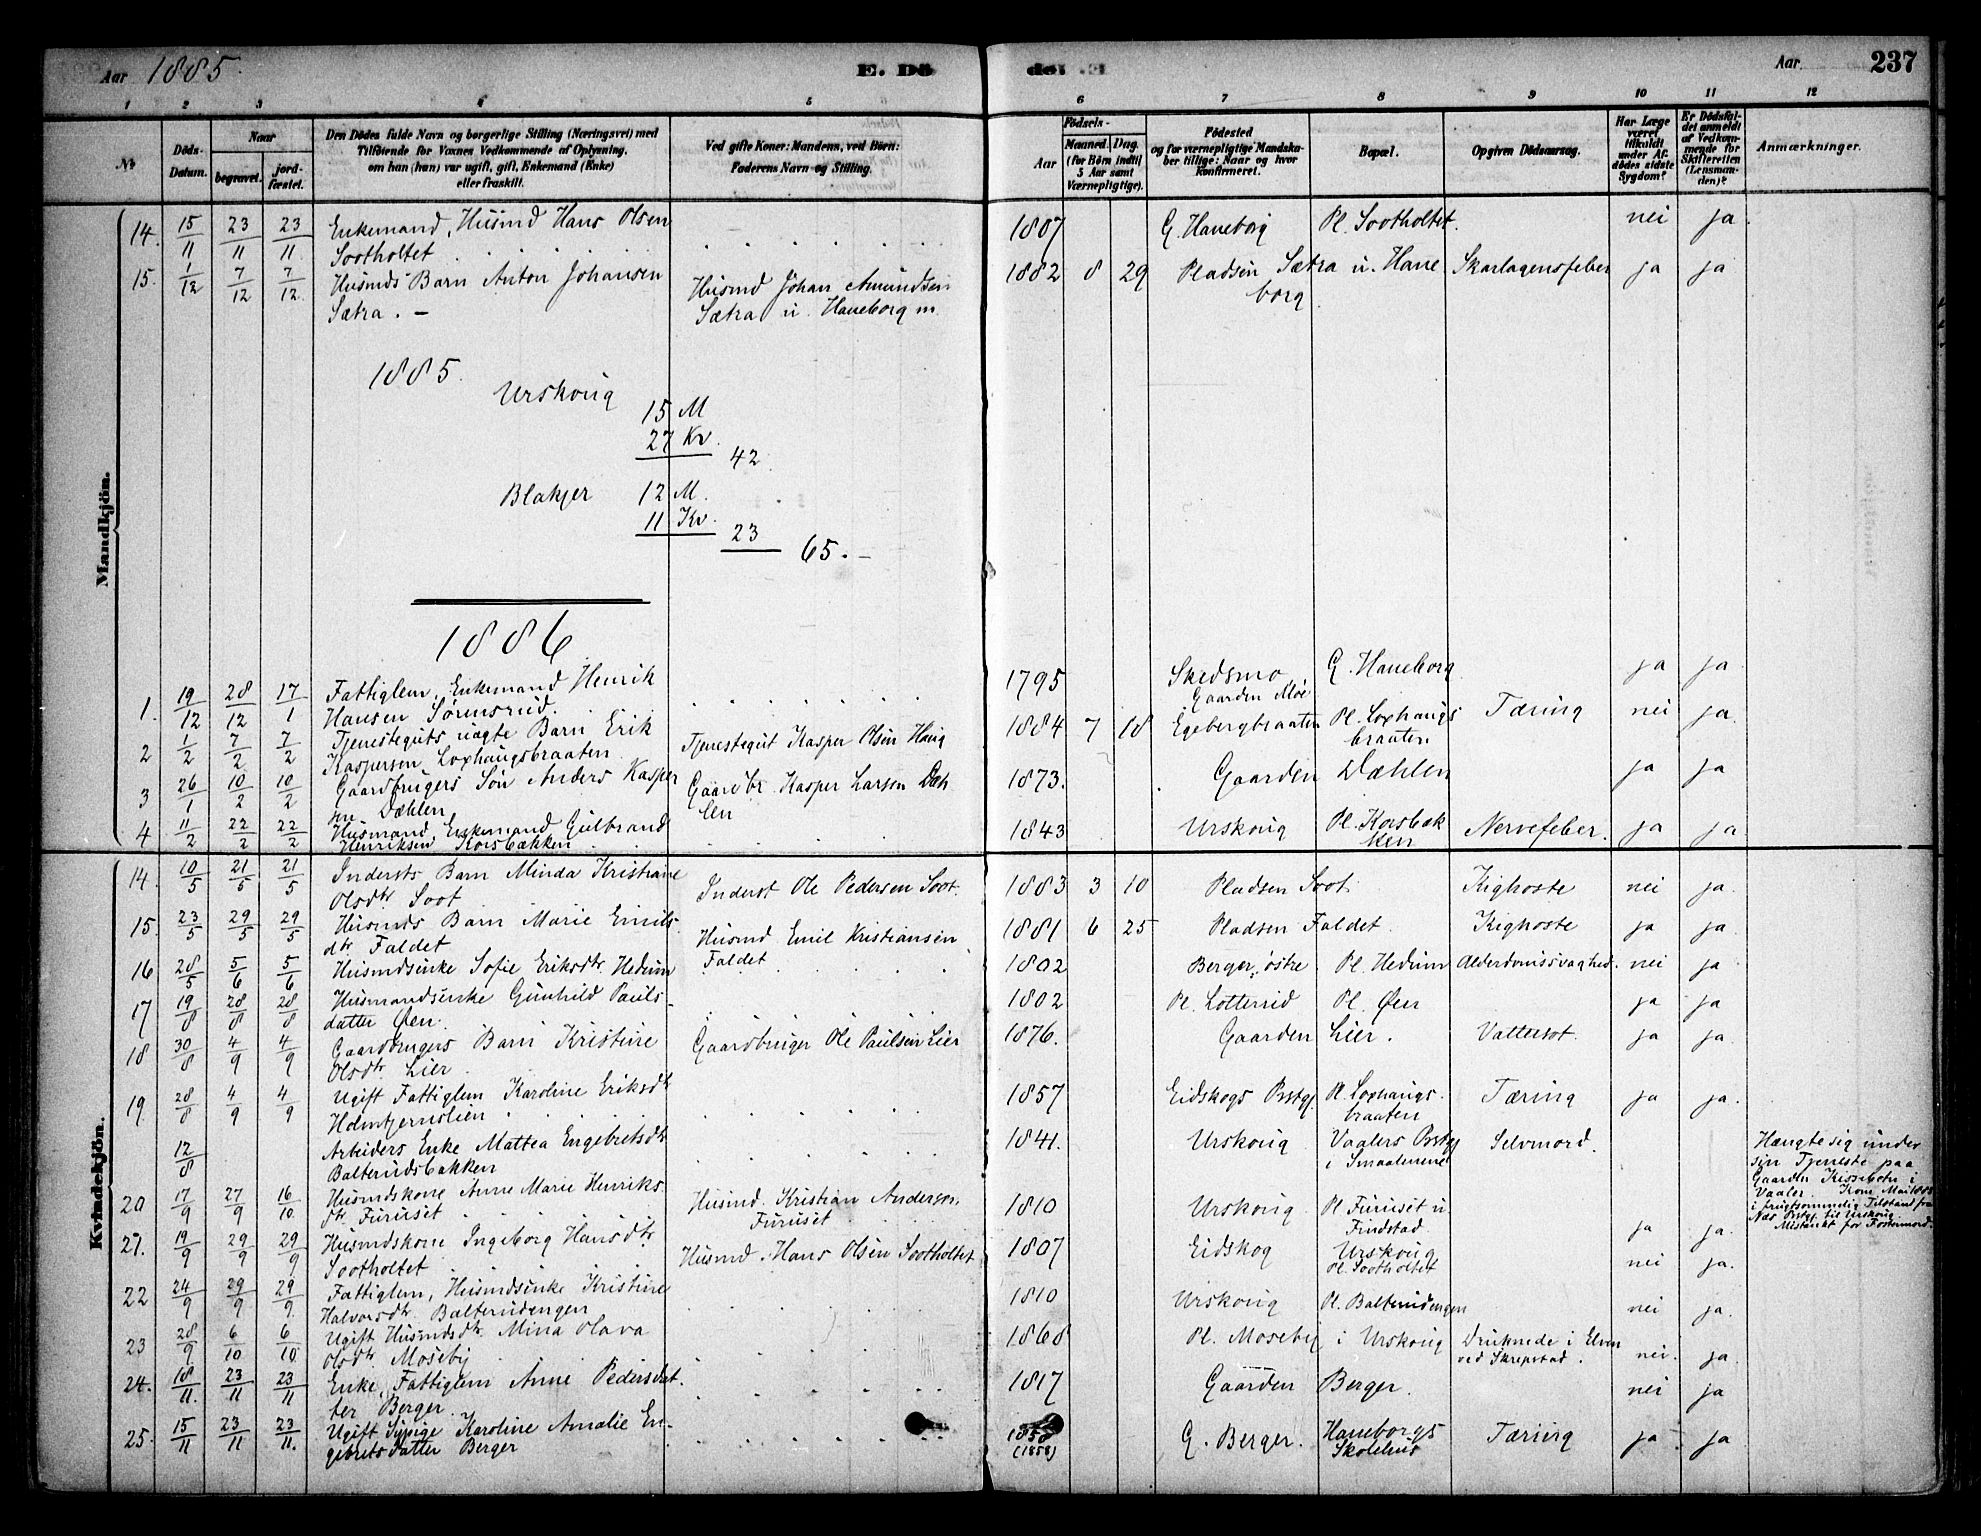 Aar 1885. E. Dö
de. E Aar. 237
1 2 3 4 5 6 7 8 9 10 11 12
No Döds-Datum. Naar begravet. jordfæstet. Den Dödes fulde Navn og borgerlige Stilling (Næringsvei) med Tilföiende for Voxnes Vedkommende af Oplysning, om han (hun) var ugift, gift, Enkemand (Enke) eller fraskilt. Ved gifte Koner: Mandens, ved Börn: Faderens Navn og Stilling. Födsels- Aar Maaned. Dag. (for Börn indtil 5 Aar samt Værnepligtige). Födested og for værnepligtige Mandskaber tillige: Naar og hvor konfirmeret. Bopæl. Opgiven Dödsaarsag. Har Læge været tilkaldt under Afdödes sidste Sygdom? Er Dödsfaldet anmeldt af Vedkommende for Skifteretten (Lensmanden)? Anmærkninger.
Mandkjön.
14. 15/11 23/11 23/11. Enkemand, Husmd Hans Olsen 1807 G. Haneborg Pl. Sootholtet. nei ja.
Sootholtet
15. 1/12 7/12 7/12. Husmds Barn Anton Johansen Husmd Johan Amundsen 1882 8 29 Pladsen Sætra u. Hane Skarlagensfeber ja ja
Sætra. — Sætra u. Haneborg m borg
1885.
Urskoug
15 M
27 Kv.
42
Blakjer 12 M.
11 Kv.
23
65. —
1886
1. 19/12 28/12 17/1 Fattiglem, Enkemand Henrik 1795 Skedsmo, G. Haneborg ja ja
Hansen Sørensrud. Gaarden Moe
2 1/2 7/2 7/2 Tjenesteguts uægte Barn Erik Tjenestegut Kasper Olsen Haug 1884 7 18 Egebergbraaten Pl. Loxhaugs Tæring nei ja.
Kaspersen Loxhaugsbraaten braaten
3 26/1 10/2 10/2 Gaardbrugers Søn Anders Kasper Gaardbr. Kasper Larsen Dæh 1873. Gaarden Dæhlen ja ja
sen Dæhlen len
4 11/2 22/2 22/2 Husmand, Enkemand Gulbrand 1843 Urskoug Pl. Korsbæk Nervefeber. ja ja
Henriksen Korsbækken ken
Kvindekjön.
14. 10/5 21/5 21/5 Indersts Barn Minda Kristiane Inderst Ole Pedersen Soot. 1883 3 10 Pladsen Soot. Kighoste nei ja.
Olsdtr Soot
15. 23/5 29/5 29/5 Husmds Barn Marie Emils- Husmd Emil Kristiansen 1881 6 25 Pladsen Faldet. Kighoste ja ja.
dtr Faldet Faldet
16 28/5 5/6 5/6 Husmdsenke Sofie Eriksdtr Hedum 1802 Berger, østre Pl. Hedum Alderdomssvaghed. nei ja
17 19/8 28/8 28/8 Husmandsenke Gunhild Pauls- 1802 Pl. Lotterud Pl. Øen ja ja
datter Øen.
18 30/8 4/9 4/9 Gaardbrugers Barn Kristine Gaardbruger Ole Paulsen Lier 1876. Gaarden Lier. Vattersot. ja ja.
Olsdtr Lier
19. 28/8 4/9 4/9 Ugift Fattiglem Karoline Eriksdtr 1857 Eidskogs Prstgj. Pl. Loxhaugs- Tæring ja ja.
Holmtjernslien braaten
12/8 Arbeiders Enke Mattea Engebretsdtr 1841. Urskoug Vaalers Prstgj Selvmord. Hængte sig under
Balterudsbakken i Smaalenene sin Tjeneste paa
Gaarden i
Vaaler. Kom Mai
i frugtsommelig Tilstand fra
Næs Prstgj. til Urskoug.
Mistænkt for Fostermord.
20 17/9 27/9 16/10 Husmdskone Anne Marie Henriks- Husmd. Kristian Andersen 1810 Urskoug Pl Furuset u ja ja.
dtr Furuset Furuset Finstad
21. 19/9 29/9 29/9 Husmdskone Ingeborg Hansdtr Husmd. Hans Olsen Sootholtet 1807 Eidskog Urskoug nei ja.
Sootholtet Pl. Sootholtet
22 24/9 29/9 29/9. Fattiglem, Husmdsenke Kristine 1810 Urskoug Pl. Balterudengen nei ja.
Halvorsdtr Balterudengen
23 28/9 6/10 6/10 Ugift Husmdsdtr. Mina Olava 1868 Pl. Moseby i Urskoug Druknede i Elven nei. ja.
Olsdtr Moseby ved Skrepstad.
24. 18/11. 23/11 23/11 Enke, Fattiglem Anne Pedersdat- 1817 Gaarden Berger. nei ja
ter Berger.
25. 15/11 23/11 23/11. Ugift Sypige Karoline Amalie En- 1858 G. Berger. Haneborgs Tæring ja ja
gebretsdatter Berger (1858) Skolehus